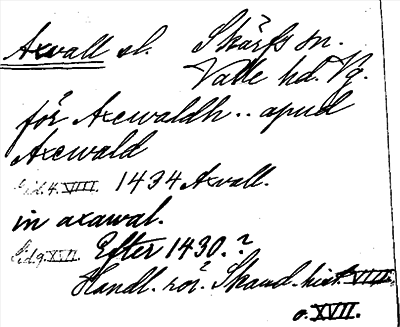 Axvall sl. Skärfs sn.
Valle hd. Vg.
för Axewaldh.. apud
Axewald
Sid. 4. XVIII. 1434 Axvall.
in axawal.
Sid. 9. XVII. Efter 1430.?
Handl. rör. Skand. hist. XVIII.
o. XVII.